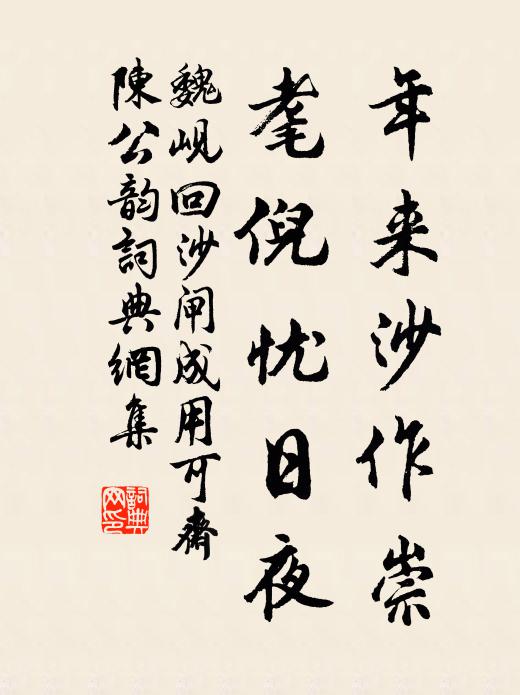 年来沙作祟
耄倪忧日夜
魏岘回沙闸成用可斋
陳公韵詞典網集
詞典网印